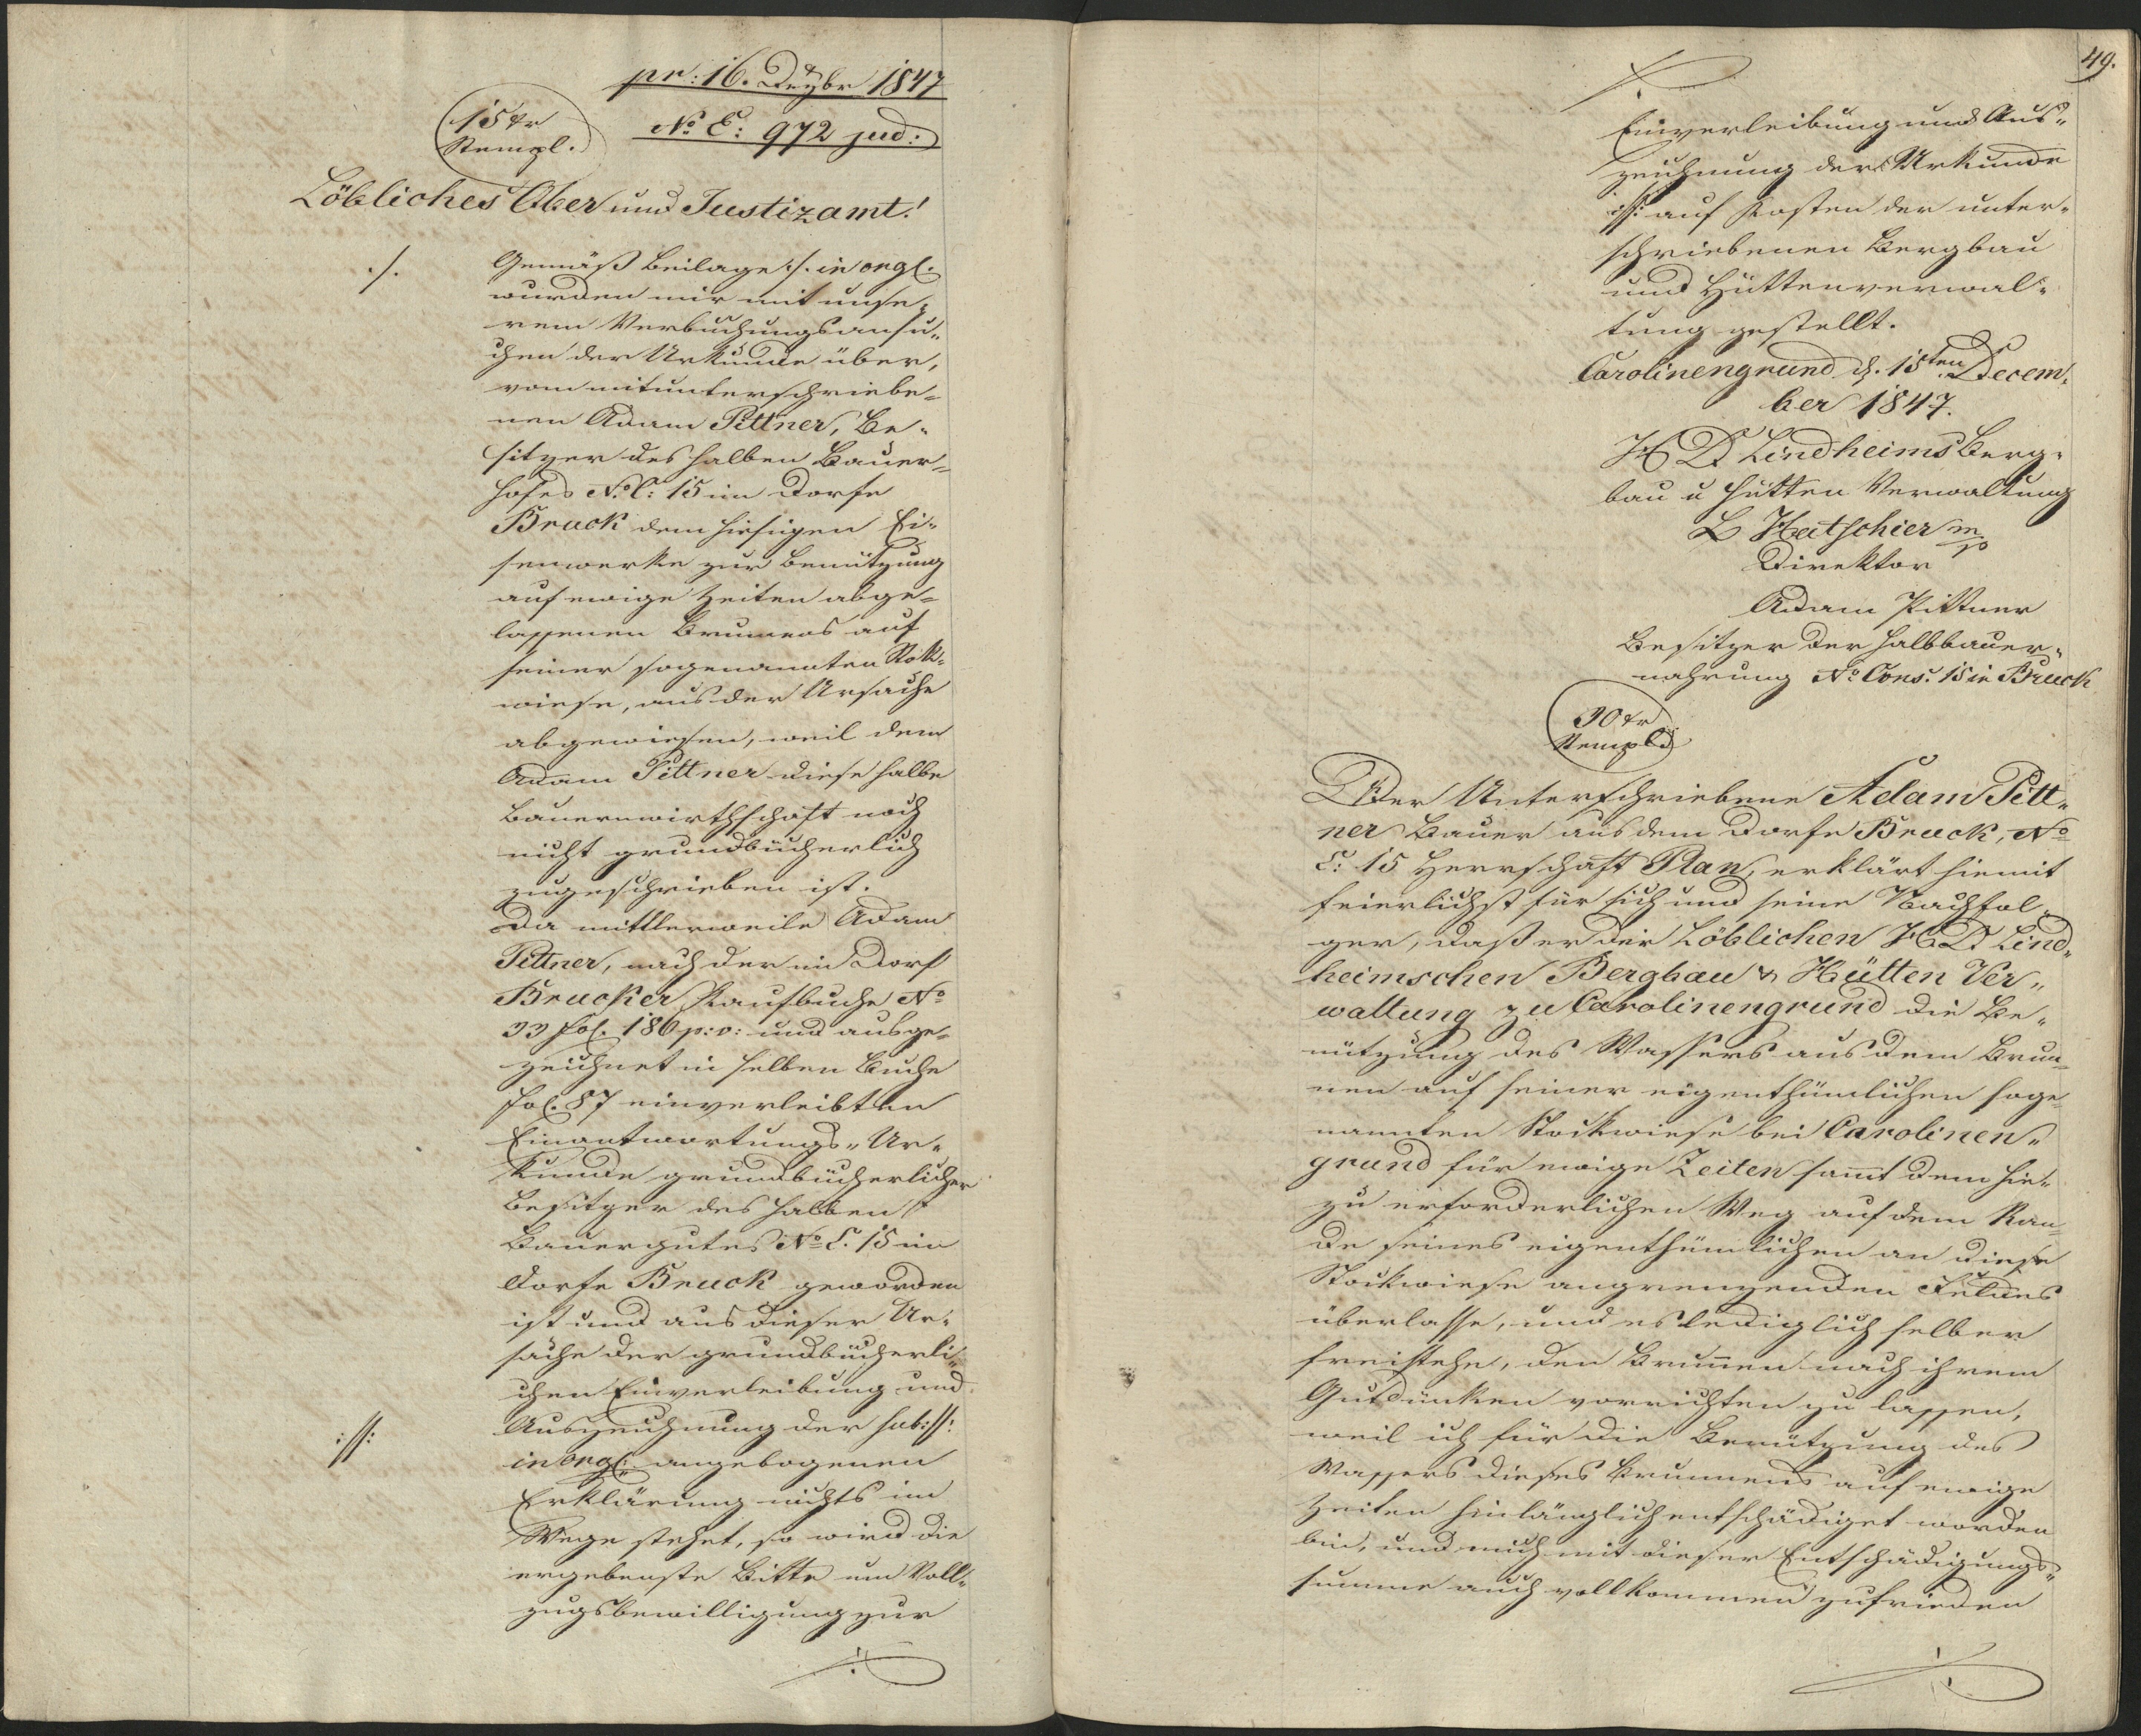 pr: 16. Dezbr 1847
15 xr
Stempl.
No E: 972 jud:
Löbliches Ober und Justizamt!
./.
Gemäß Beilage ./. in orgl.
wurden wir mit unse„
rem Verbuchungsansu„
chen der Urkunde über,
vom mitunterschriebe„
nen Adam Pittner, Be„
sitzer des halben Bauer„
hofes No C: 15 im Dorfe
Bruck dem hiesigen Ei„
senwerke zur Benützung
auf ewige Zeiten abge„
lassenen Brunens auf
seiner sogenannten Stok„
wiese, aus der Ursache
abgewiesen, weil dem
Adam Pittner diese halbe
Bauernwirthschaft noch
nicht grundbücherlich
zugeschrieben ist.
Da mittlerweile Adam
Pittner, nach der im Dorf
Brucker Kaufbuche No
33 Fol. 186 p: v: und ausge„
zeichnet in selben Buche
Fol. 87 einverleibten
Einantwortungs„Ur„
kunde grundbücherlicher
Besitzer des halben
Bauergutes No C. 15 im
Dorfe Bruck geworden
ist und aus dieser Ur„
sache der grundbücherli„
chen Einverleibung und
Auszeichnung der sub ://:
://:
in orgl: angebogenen
Erklärung nichts im
Wege stehet, so wird die
ergebenste Bitte um Voll„
zugsbewilligung zur
49.
Einverleibung und Aus„
zeichnung der Urkunde
://: auf Kosten der unter„
schriebenen Bergbau
und Hüttenverwal„
tung gestellt.
Carolinengrund d. 15ten Decem„
ber 1847.
H D Lindheims Berg„
bau u Hütten Verwaltung
L Hatschier m/p
Direktor
Adam Pittner
Besitzer der Halbbauer„
nahrung No Cons: 15 in Bruck
30 xr
Stempl
Der Unterschriebene Adam Pitt„
ner Bauer aus dem Dorfe Bruck, No
C: 15 Herrschaft Plan, erklärt hiemit
feierlichst für sich und seine Nachfol„
ger, daß er der Löblichen H D Lind„
heimschen Bergbau & Hütten Ver„
waltung zu Carolinengrund die Be„
nützung des Wassers aus dem Brun„
nen auf seiner eigenthümlichen soge„
nannten Stockwiese bei Carolinen„
grund für ewige Zeiten samt dem hie„
zu erforderlichen Weg auf dem Ran„
de seines eigenthümlichen an diese
Stockwiese angrenzenden Feldes
überlasse, und es lediglich selber
freistehe, den Brunnen nach ihrem
Gutdünken vorrichten zu lassen,
weil ich für die Benützung des
Wassers dieses Brunnens auf ewige
Zeiten hinlänglich entschädiget worden
bin, und mich mit dieser Entschädigungs„
summe auch vollkommen zufrieden